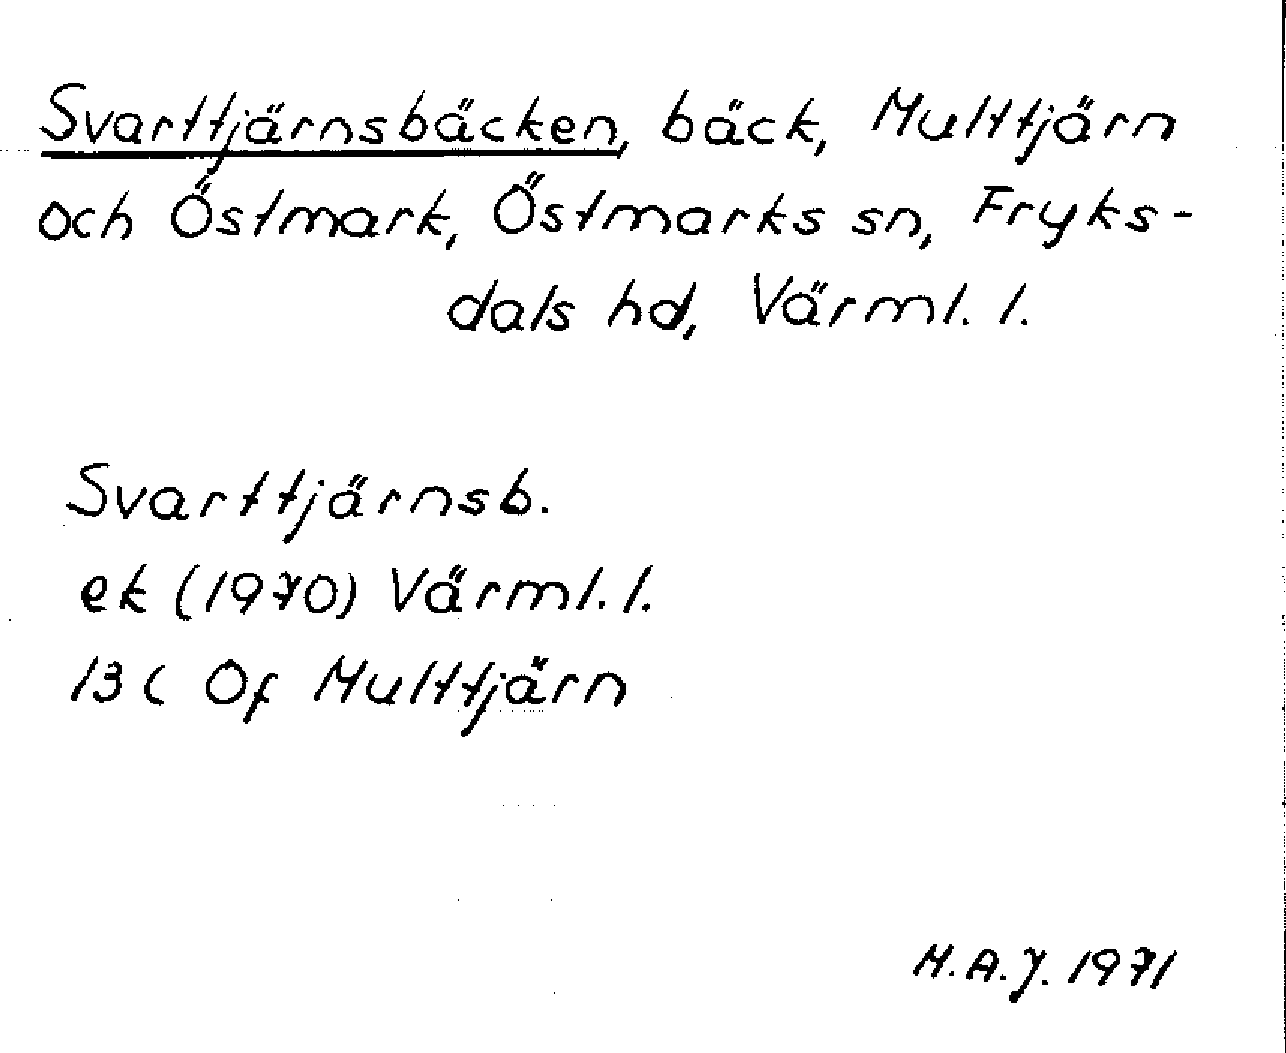 Svarttjärnsbäcken, bäck, Multtjärn
och Östmark, Östmarks sn, Fryks-
dals hd, Värml. l.
Svarttjärnsb.
ek (1970) Värml. l.
13 C Of Multtjärn
M.A.J. 1971